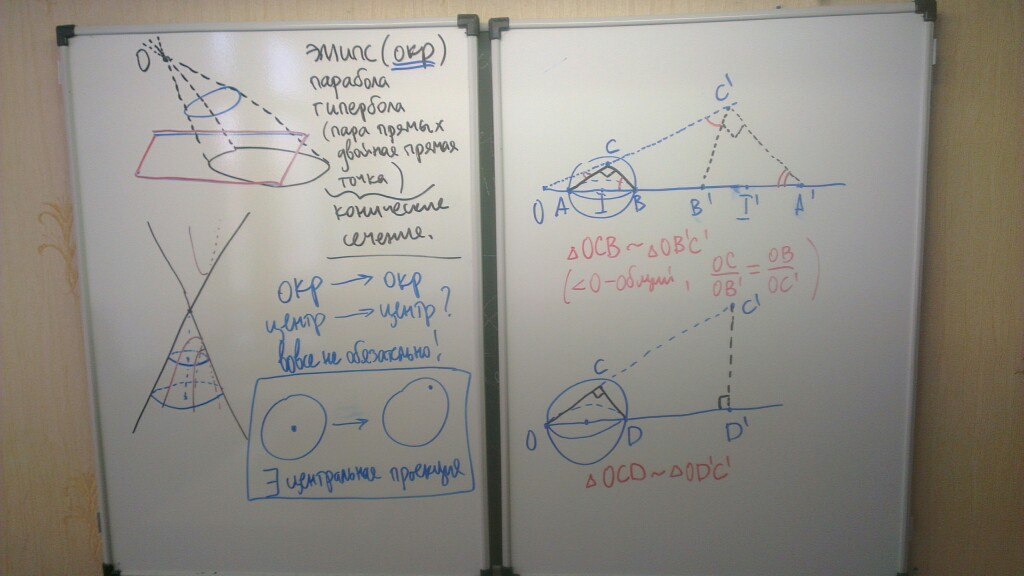 O
эллипс (окр)
парабола
гипербола
(пара прямых
двойная прямая
точка)
конические
сечение.
окр → окр
центр → центр?
вовсе не обязательно!
→
∃ центральная проекция
C'
C
O A I B B' I' A'
△OCB ~ △OB'C'
(∠O-общий, OC/OB' = OB/OC')
C'
C
O D D'
△OCD ~ △OD'C'